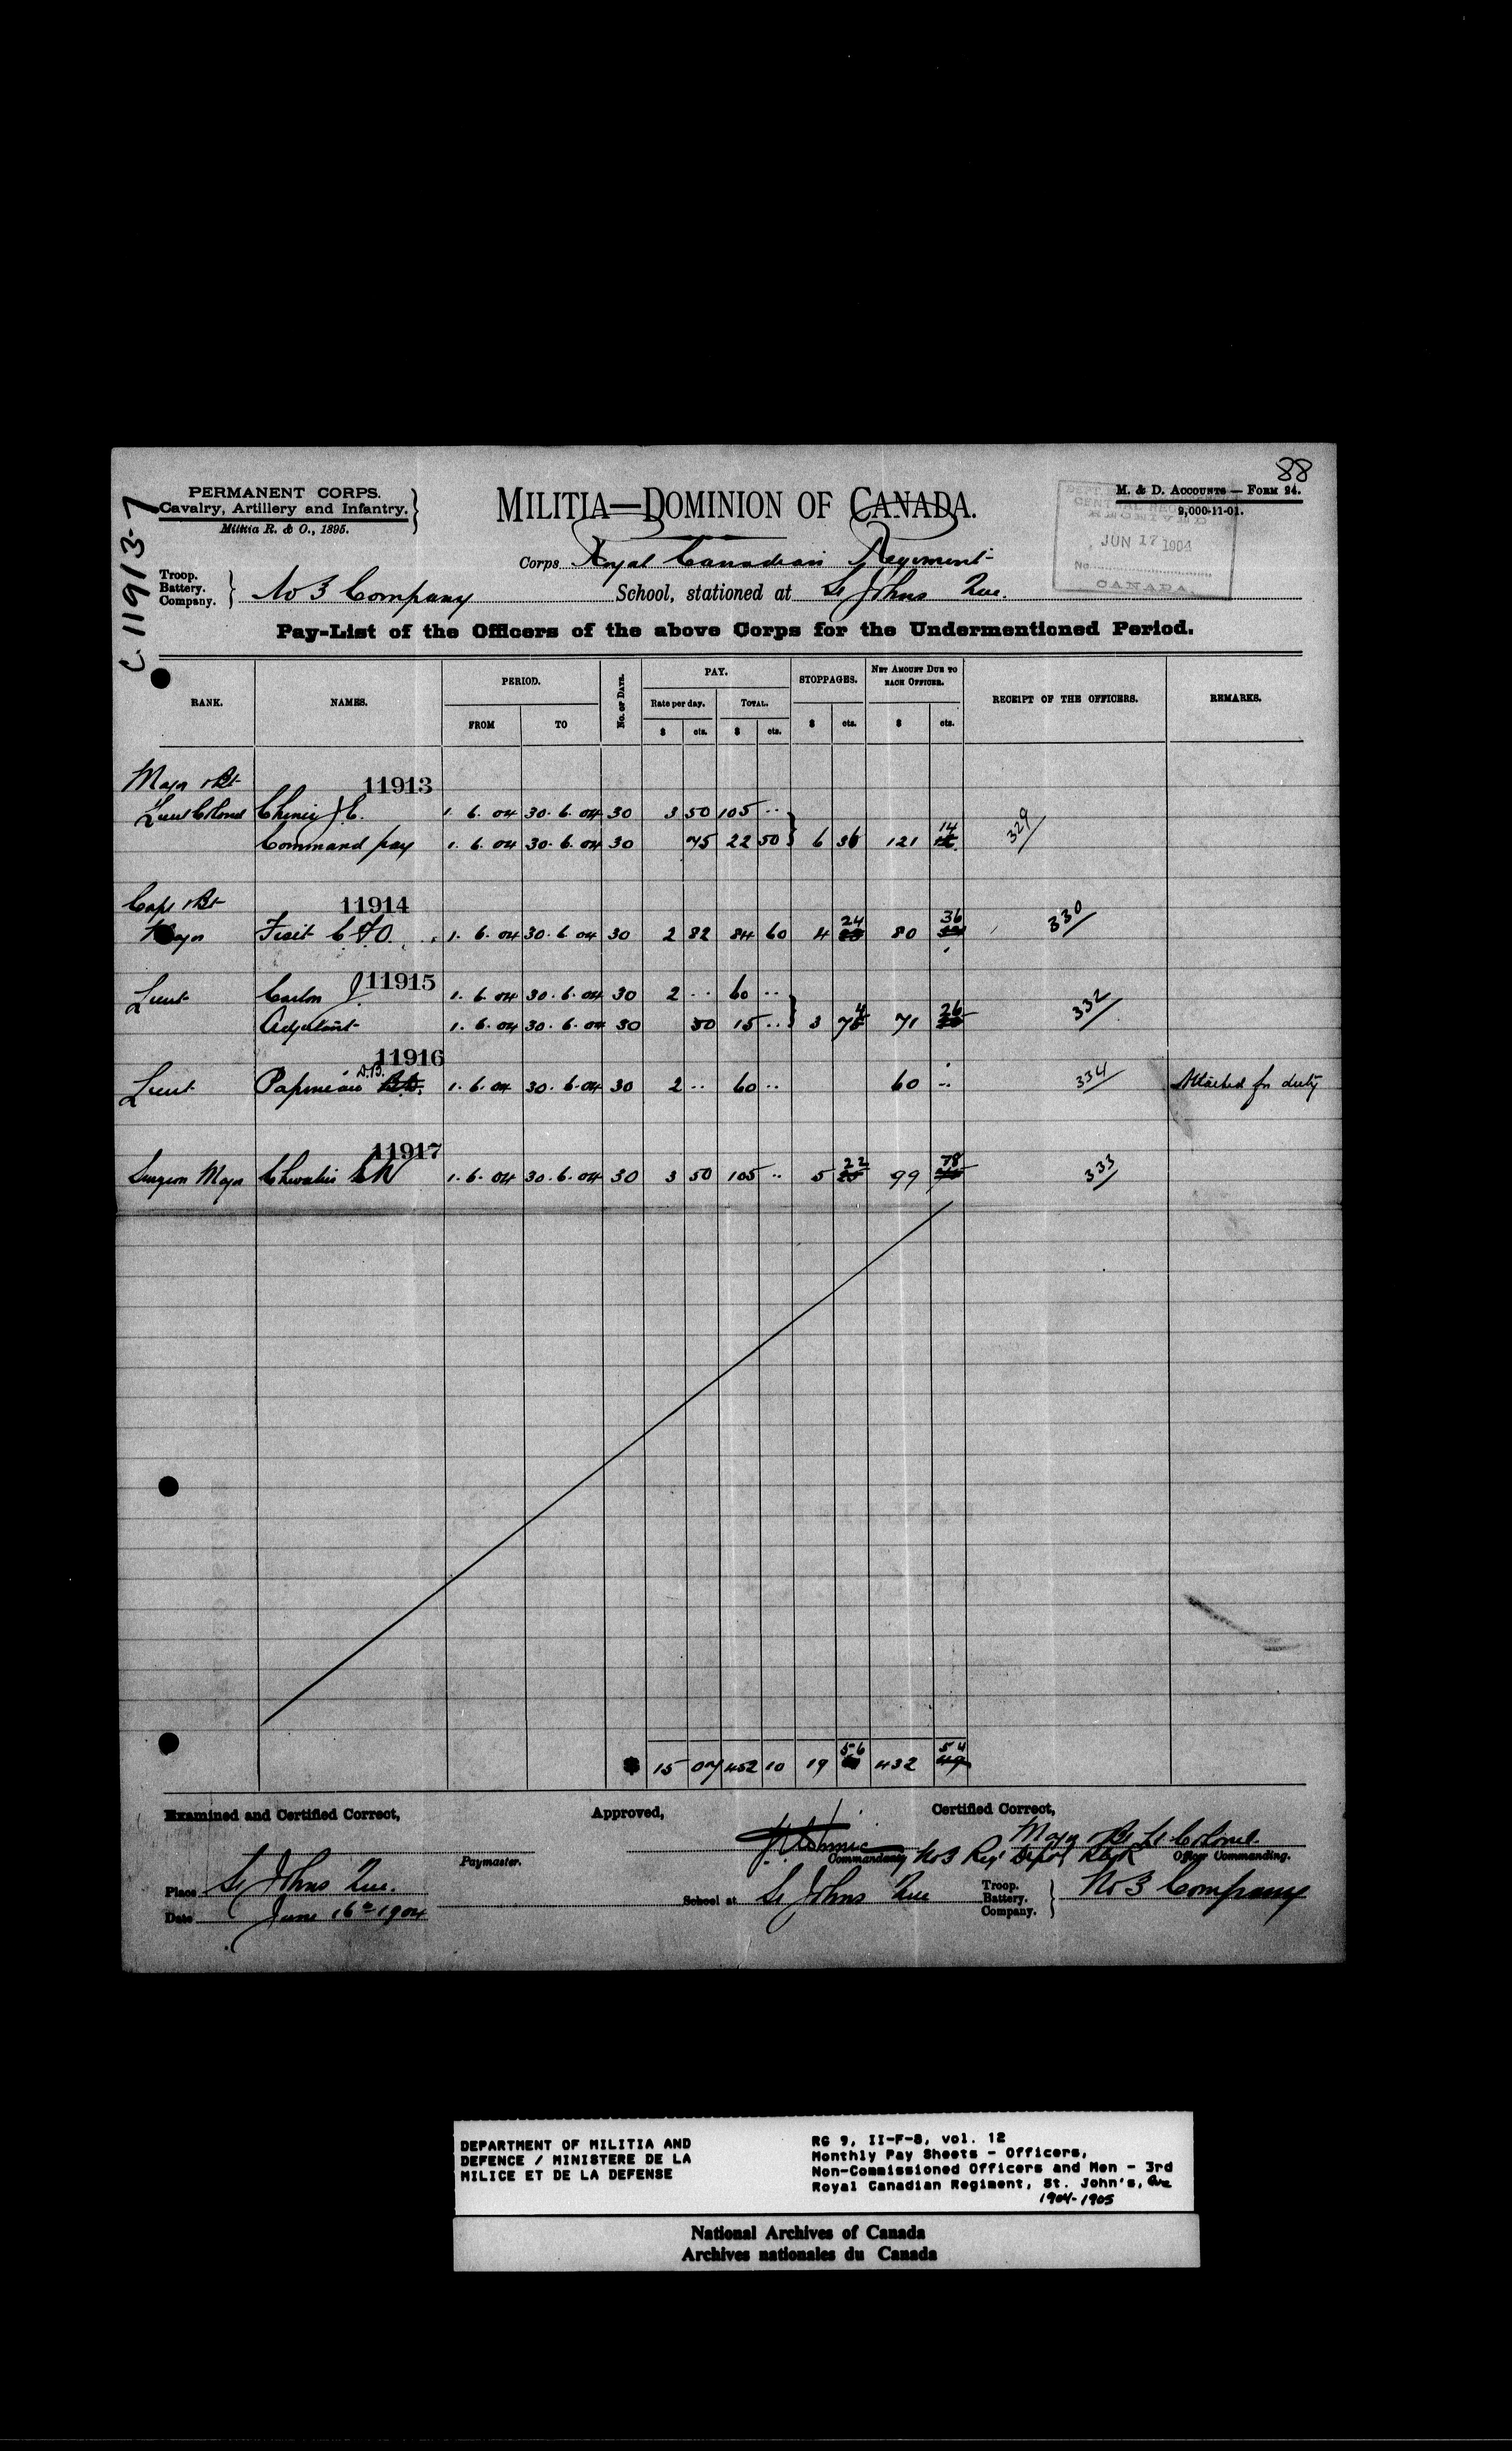 88
PERMANENT CORPS.
Cavalry, Artillery and Infantry.
Militia R. & O., 1895.
MILITIA—DOMINION OF CANADA.
M. & D. ACCOUNTS — FORM 94.
9,000-11-01.
JUN 17 1904
No.
CANADA.
C 11913-7
Corps Royal Canadian Regiment
Troop. Battery. Company. } No 3 Company School, stationed at St Johns Que.
Pay-List of the Officers of the above Corps for the Undermentioned Period.
RANK. NAMES. PERIOD. FROM TO No. OF DAYS. PAY. Rate per day. $ cts. TOTAL. $ cts. STOPPAGES. $ cts. NET AMOUNT DUE TO EACH OFFICER. $ cts. RECEIPT OF THE OFFICERS. REMARKS.
Major & Bt 11913
Lieut Colonel Chinic J C. 1. 6. 04 30. 6. 04 30 3 50 105 ..
Command pay 1. 6. 04 30. 6. 04 30 75 22 50 } 6 36 121 14 329
Capt & Bt 11914
Major Fiset C F O. 1. 6. 04 30. 6. 04 30 2 82 84 60 4 24 80 36 330
Lieut Carlon J 11915 1. 6. 04 30. 6. 04 30 2 .. 60 ..
Adjutant 1. 6. 04 30. 6. 04 30 50 15 .. } 3 74 71 26 332
11916
Lieut Papineau D.B. 1. 6. 04 30. 6. 04 30 2 .. 60 .. 60 .. 334 Attached for duty
11917
Surgeon Major Chevalier E N 1. 6. 04 30. 6. 04 30 3 50 105 .. 5 22 99 78 333
$ 15 07 452 10 19 56 432 54
Examined and Certified Correct, Approved, Certified Correct,
Major Bt Lt Colonel
Paymaster. Commandant, No 3 Reg Depot Officer Commanding.
Place St Johns Que. School at St Johns Que Troop. Battery. Company. } No 3 Company
Date June 16th 1904
DEPARTMENT OF MILITIA AND
DEFENCE / MINISTERE DE LA
MILICE ET DE LA DEFENSE
RG 9, II-F-8, vol. 12
Monthly Pay Sheets - Officers,
Non-Commissioned Officers and Men - 3rd
Royal Canadian Regiment, St. John's, Que
1904-1905
National Archives of Canada
Archives nationales du Canada